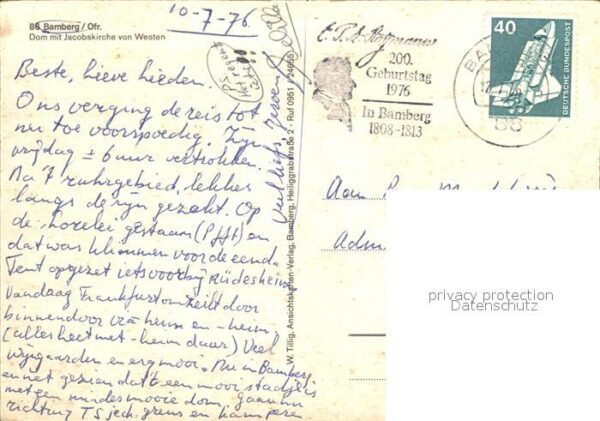 10-7-76
86 Bamberg / Ofr.
Dom mit Jacobskirche von Westen
Beste, lieve lieden.
Ons verging de reis tot
nu toe voorspoedig. Zijn
vrijdag ± 6 uur vertrokken.
Na 't ruhrgebied, lekker
langs de rijn gezakt. Op
de Lorelei gestaan (Pfff) en
dat was klimmen voor de eend.
Tent opgezet iets voorbij Rüdesheim
Vandaag Frankfurt omzeilt door
binnendoor via heim en -heim.
(alles heet met -heim daar) Veel
wijngaarden en erg mooi. Nu in Bamberg
en net gezien dat 't een mooi stadje is
met een mindesmooie dom, gaan nu
richting Tsjech. grens en kamperen
PS
het regent
veel liefs, Jeroen
W. Tillig, Ansichtskarten-Verlag, Bamberg, Heiliggrabstraße 2 - Ruf 0951 / 24665
E.T.A. Hoffmann
200.
Geburtstag
1976
In Bamberg
1808-1813
BA
86
40
DEUTSCHE BUNDESPOST
Aan
Adm
privacy protection
Datenschutz